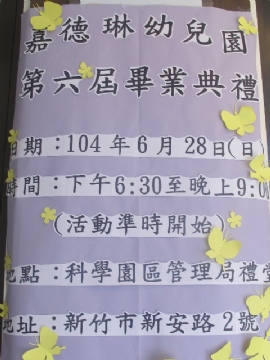 嘉德琳幼兒園
第六屆畢業典禮
日期：104年6月28日(日)
時間：下午6:30至晚上9:0
(活動準時開始)
地點：科學園區管理局禮堂
地址：新竹市新安路2號